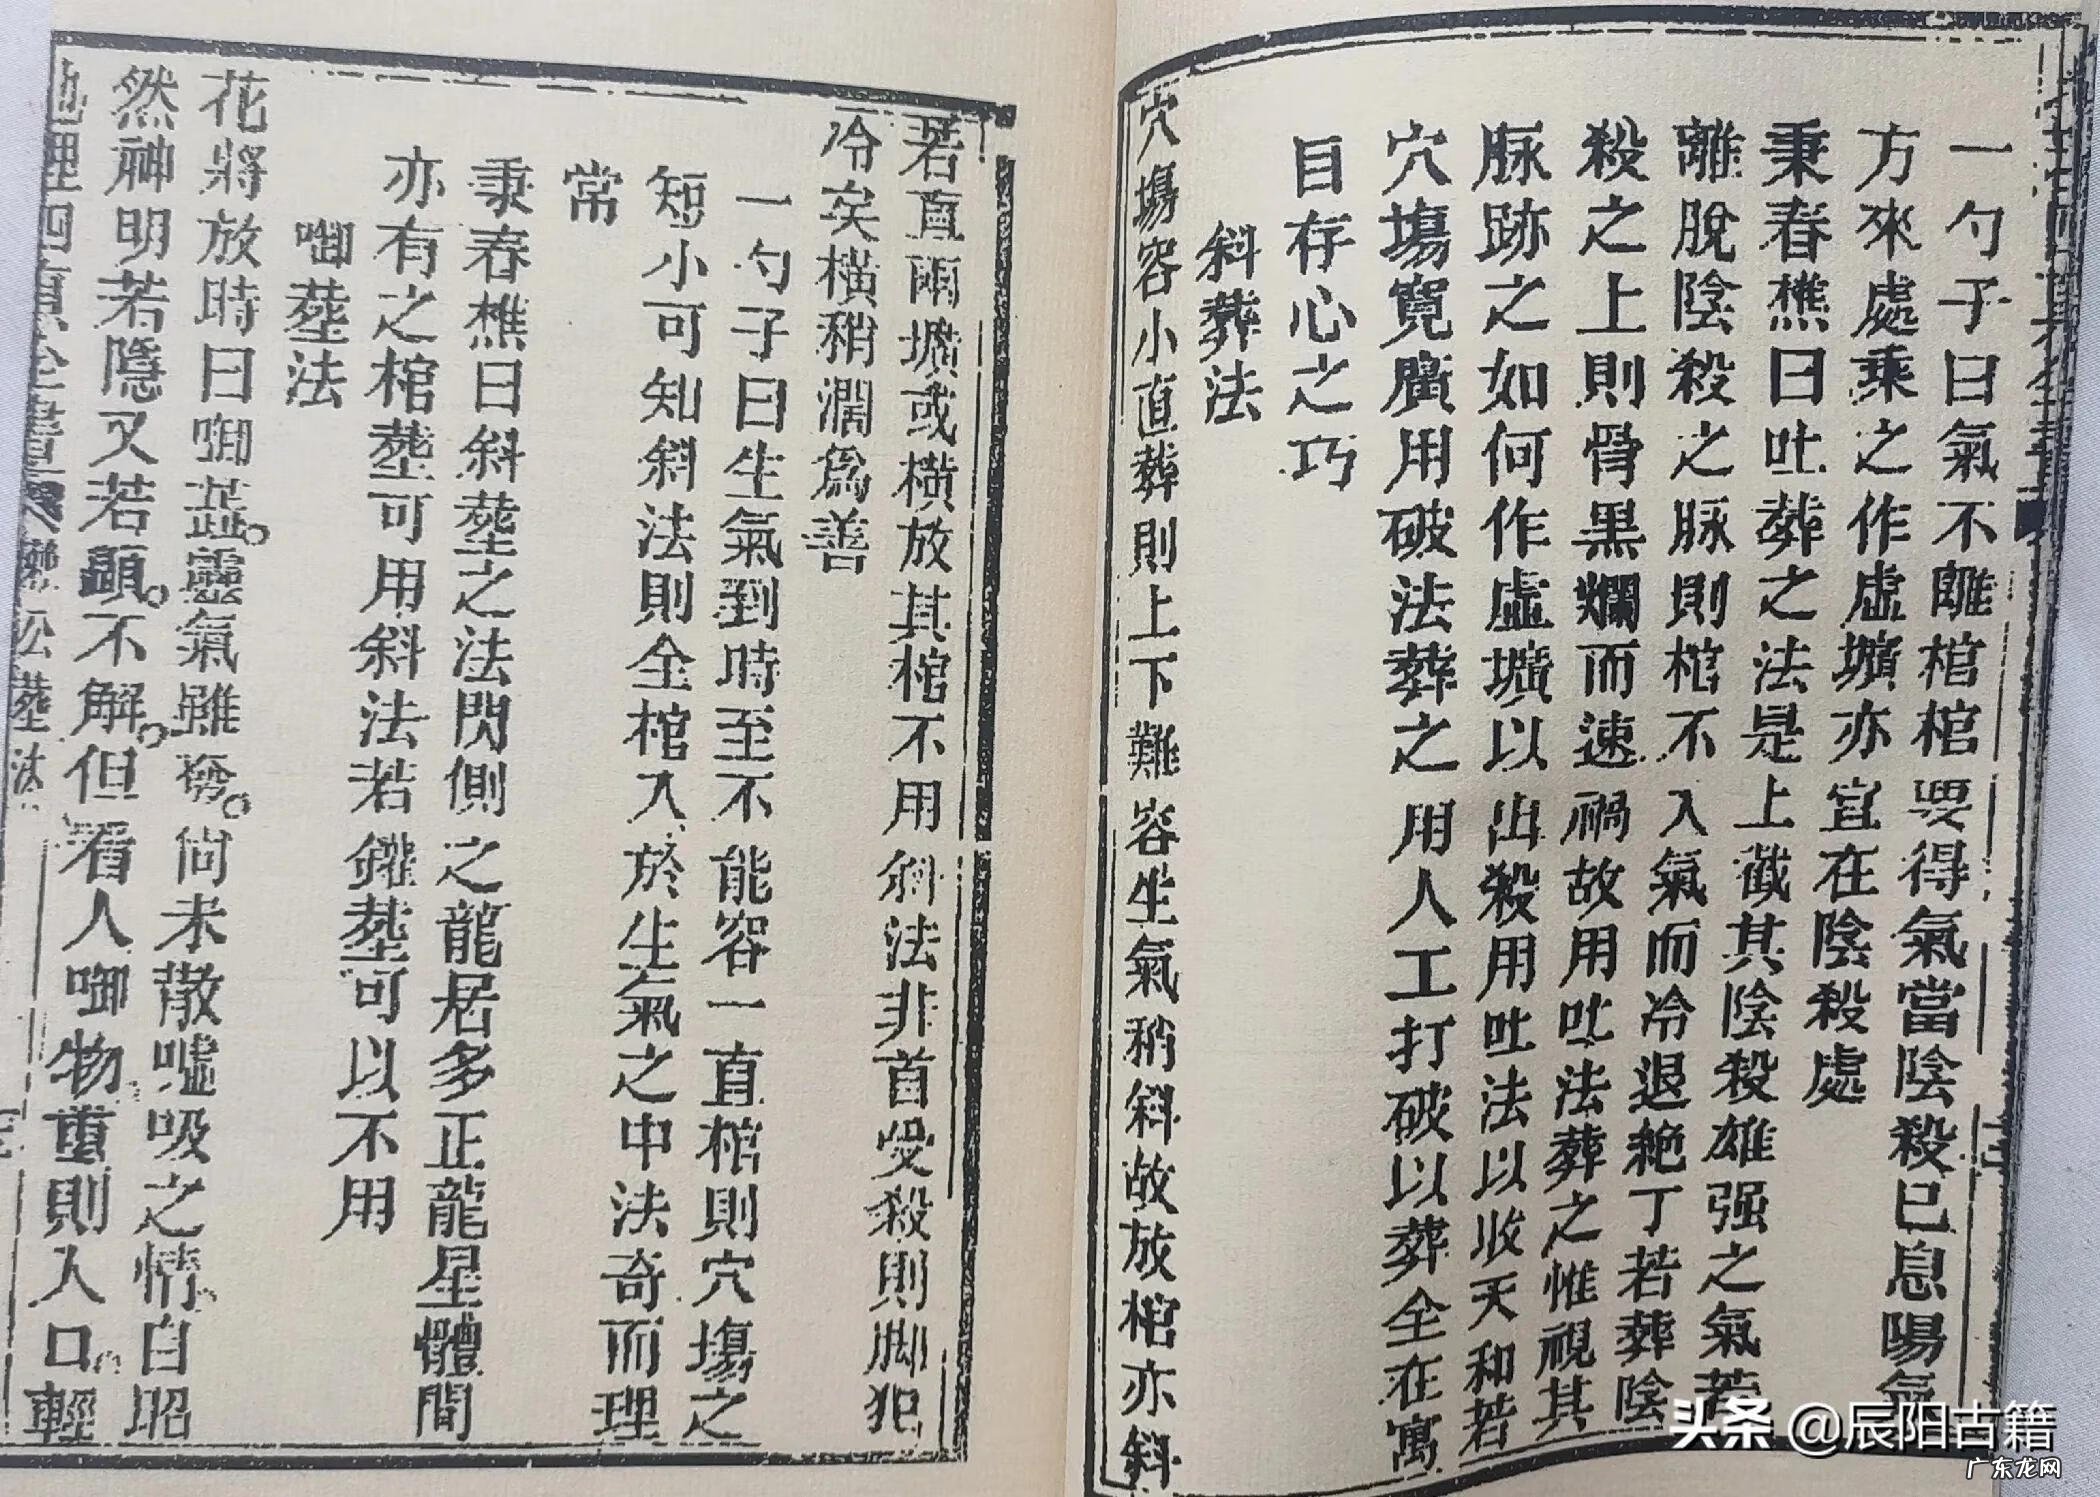 一勺子曰氣不離棺棺要得氣當陰殺已息陽氣
方來處乘之作虛壙亦宜在陰殺處
秉春樵曰吐葬之法是上截其陰殺雄强之氣若
離脫陰殺之脉則棺不入氣而冷退絶丁若葬陰
殺之上則骨黑爛而速禍故用吐法葬之惟視其
脉跡之如何作虛壙以出殺用吐法以收天和若
穴塲寬廣用破法葬之用人工打破以葬全在寓
目存心之巧
斜葬法
穴塲容小直葬則上下難容生氣稍斜故放棺亦斜
若直兩壙或横放其棺不用斜法非首受殺則脚犯
冷矣横稍濶為善
一勺子曰生氣到時至不能容一直棺則穴塲之
短小可知斜法則全棺入於生氣之中法奇而理
常
秉春樵曰斜塟之法閃側之龍居多正龍星體間
亦有之棺塟可用斜法若鑵塟可以不用
啣塟法
花將放時曰啣蕋靈氣雖發尚未散噓吸之情自昭
然神明若隱又若顯不解但看人啣物重則入口輕
地理四真全書 公塟法
頭条 @辰阳古籍
广东龙网